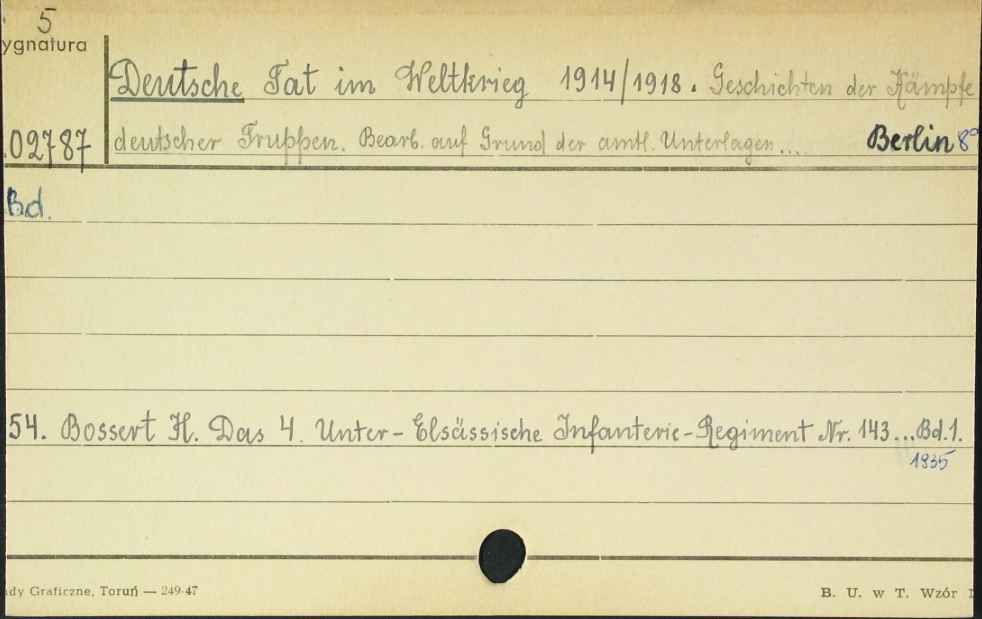 5
ygnatura
Deutsche Tat im Weltkrieg 1914/1918. Geschichten der Kämpfe
.02787 deutscher Truppen. Bearb. auf Grund der amtl. Unterlagen.... Berlin 8°
Bd.
54. Bossert H. Das 4. Unter-Elsässische Infanterie-Regiment Nr. 143...Bd.1.
1935
dy Graficzne, Toruń — 249-47 B. U. w T. Wzór